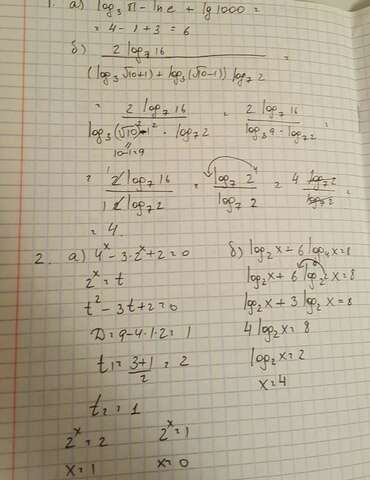 1. а) log₃ 81 - ln e + lg 1000 =
= 4 - 1 + 3 = 6
б) 2 log₇ 16 / (log₃(√10+1) + log₃(√10-1)) log₇ 2 =
= 2 log₇ 16 / log₃(√10)² - 1² · log₇ 2 = 2 log₇ 16 / log₃ 9 · log₇ 2 =
10-1=9
= 2 log₇ 16 / 2 log₇ 2 = log₇ 2⁴ / log₇ 2 = 4 log₇ 2 / log₇ 2 =
= 4
2. а) 4ˣ - 3·2ˣ + 2 = 0
2ˣ = t
t² - 3t + 2 = 0
D = 9 - 4·1·2 = 1
t₁ = 3+1 / 2 = 2
t₂ = 1
2ˣ = 2 2ˣ = 1
x = 1 x = 0
б) log₂ x + 6 log₄ x = 8
log₂ x + 6 log₂² x = 8
log₂ x + 3 log₂ x = 8
4 log₂ x = 8
log₂ x = 2
x = 4